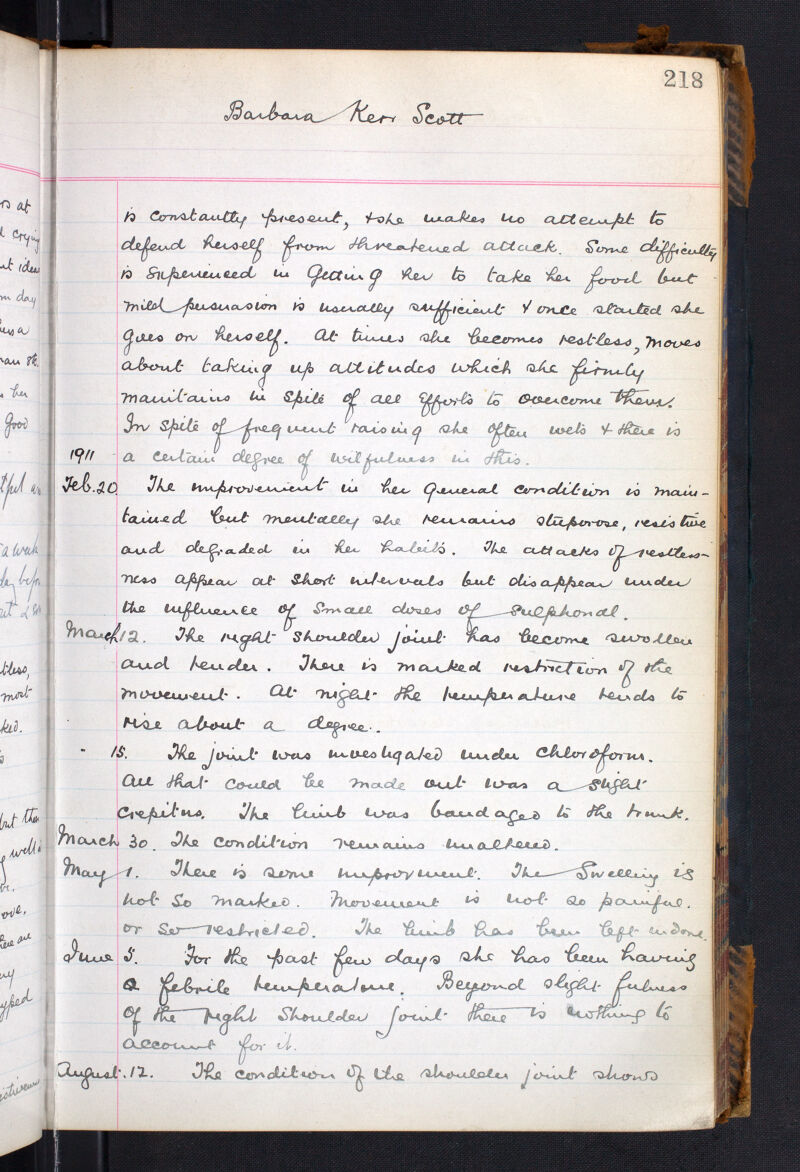 218
Barbara Kerr Scott
is constantly present, & she makes no attempt to
defend herself from threatened attack. Some difficulty
is experienced in getting her to take her food but
mild persuasion is usually sufficient & once started she
goes on herself. At times she becomes restless, moves
about taking up attitudes which she firmly
maintains in spite of all efforts to overcome them.
In spite of frequent raising she often wets & there is
1911 a certain degree of wilfulness in this.
Feb. 20. The improvement in her general condition is main-
tained but mentally she remains stuporose, resistive
and degraded in her habits. The attacks of restless-
ness appear at short intervals but disappear under
the influence of small doses of sulphonal.
March 12. The right shoulder joint has become swollen
and tender. There is marked restriction of the
movement. At night the temperature tends to
rise about a degree.
" 15. The joint was investigated under chloroform.
All that could be made out was a slight
crepitus. The limb was bandaged to the trunk.
March 30. The condition remains unaltered.
May 1. There is some improvment. The swelling is
not so marked. Movement is not so painful.
or so restricted. The limb has been left undone.
June 5. For the past few days she has been having
a febrile temperature. Beyond slight fulness
of the right shoulder joint there is nothing to
account for it.
August. 12. The condition of the shoulder joint shows